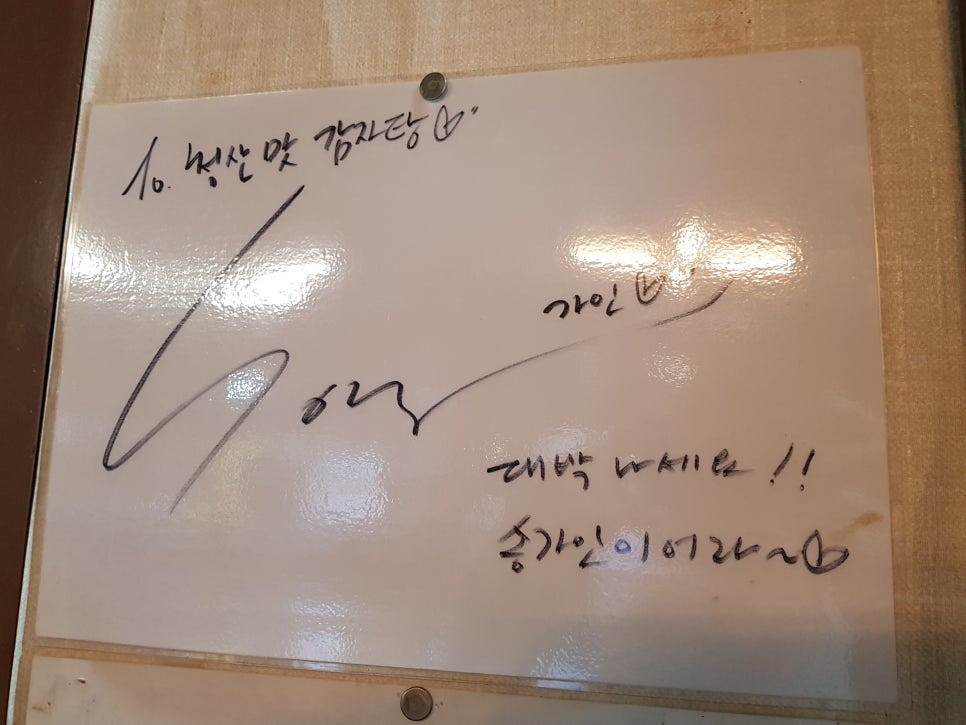 To. 청산 맛 감자탕
가인
대박 나세요!!
송가인이어라~